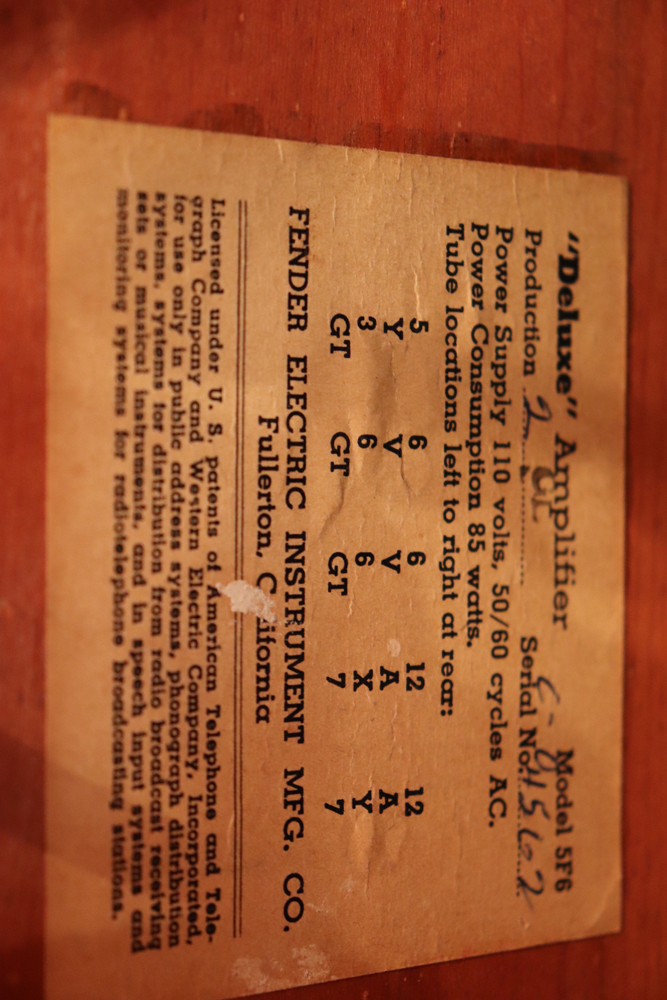 "Deluxe" Amplifier Model 5F6
Production Serial No.
Power Supply 110 volts, 50/60 cycles AC.
Power Consumption 85 watts.
Tube locations left to right at rear:
5 6 6 12 12
Y V V A A
3 6 6 X Y
GT GT GT 7 7
FENDER ELECTRIC INSTRUMENT MFG. CO.
Fullerton, C ifornia
Licensed under U. S. patents of American Telephone and Tele-
graph Company and Western Electric Company, Incorporated,
for use only in public address systems, phonograph distribution
systems, systems for distribution from radio broadcast receiving
sets or musical instruments, and in speech input systems and
monitoring systems for radiotelephone broadcasting stations.